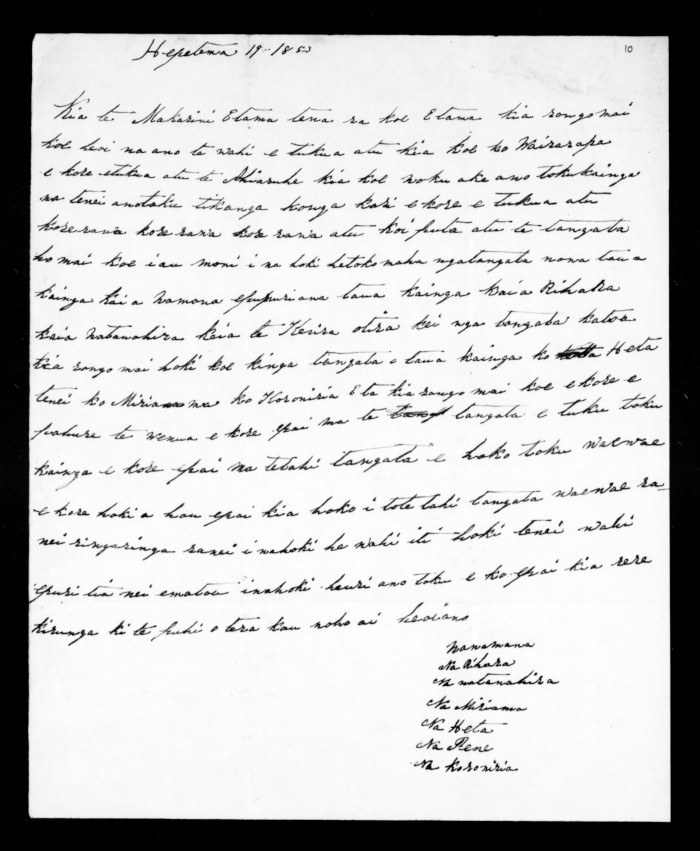 Hepetema 19 - 1853
10
Kia te Makarini Etama tena ra koe Etama kia rongo mai
koe heoi na ano te wahi e tukua atu kia koe ko Wairarapa
e kore etukua atu te Ahiaruhe kia koe noku ake ano tokukainga
na tenei anotaku tikanga konga kari ekore e tukua atu
kore rawa kore rawa kore rawa atu koi puta atu te tangata
ho mai koe i au moni i na hoki hetoko maha ngatangata nona taua
kainga kai a Wamana epupuriana taua kainga kaia Rihara
kaia Natanahira kaia te Kerira otira kei nga tangata katoa
kia rongo mai hoki koe kinga tangata o taua kainga ko Heta
tenei ko Miriama ko Koroniria Eta kia rongo mai koe ekore e
pahure te wenua e kore epai ma te tangata e tuku toku
kainga e kore epai ma tetahi tangata e hoko toku waewae
e kore hoki a hau epai kia hoko i tote tahi tangata waewae ra-
nei ringaringa ranei i nahoki he wahi iti hoki tenei wahi
epuri tia nei ematou innhoki heuri ano toku e ko epai kia rere
kirunga ki te puhi o tera kau noho ai heoiano
Nawamana
Na Rihara
Na natanahira
Na Miriama
Na Heta
Na Rene
Na Koroniria